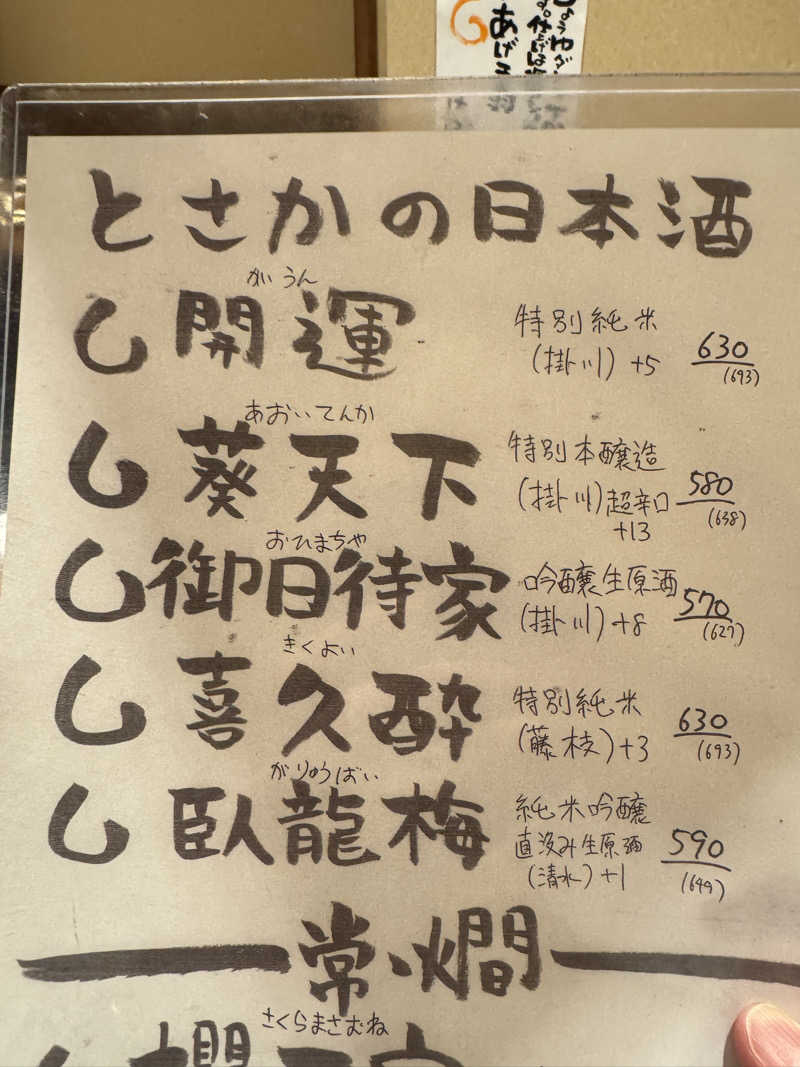 しょうゆダ
す。仕上げは
あげ
とさかの日本酒
かいうん
開運
特別純米
(掛川) +5
630
(693)
あおいてんか
葵天下
特別本醸造
(掛川)超辛口
+13
580
(638)
おひまちや
御日待家
吟醸生原酒
(掛川) +8
570
(627)
きくよい
喜久酔
特別純米
(藤枝) +3
630
(693)
がりゅうばい
臥龍梅
純米吟醸
直汲み生原酒
(清水) +1
590
(649)
常・燗
さくらまさむね